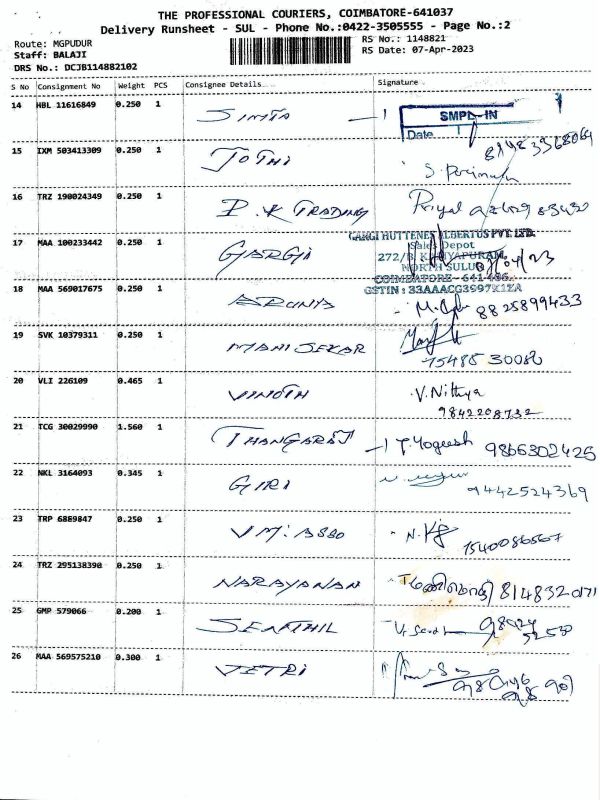 THE PROFESSIONAL COURIERS, COIMBATORE-641037
Delivery Runsheet - SUL - Phone No.:0422-3505555 - Page No.:2
Route: MGPUDUR
RS No.: 1148821
Staff: BALAJI
RS Date: 07-Apr-2023
DRS No.: DCJB114882102
S No Consignment No Weight PCS Consignee Details Signature
14 HBL 11616849 0.250 1 SIMTA -1 SMPL-IN
Date
15 IXM 503413309 0.250 1 JOTHI
16 TRZ 190024349 0.250 1 P.K TRADING Priyal
GARGI HUTTENES ALBERTUS PVT. LTD.
17 MAA 100233442 0.250 1 GARGI Sales Depot
NORTH SULUR
COIMBATORE - 641 406.
GSTIN : 33AAACG3997K1ZA
18 MAA 569017675 0.250 1 ARUNA 8825899433
19 SVK 10379311 0.250 1 MANI SEKAR
20 VLI 226109 0.465 1 VINOTH V. Nithya
9842208732
21 TCG 30029990 1.560 1 THANGARAJ -1 T. Yogeesh 9866302425
22 NKL 3164093 0.345 1 GIRI
9442524369
23 TRP 6889847 0.250 1
24 TRZ 295138390 0.250 1 NARAYANAN
25 GMP 579066 0.200 1 SENTHIL
26 MAA 569575210 0.300 1 VETRI